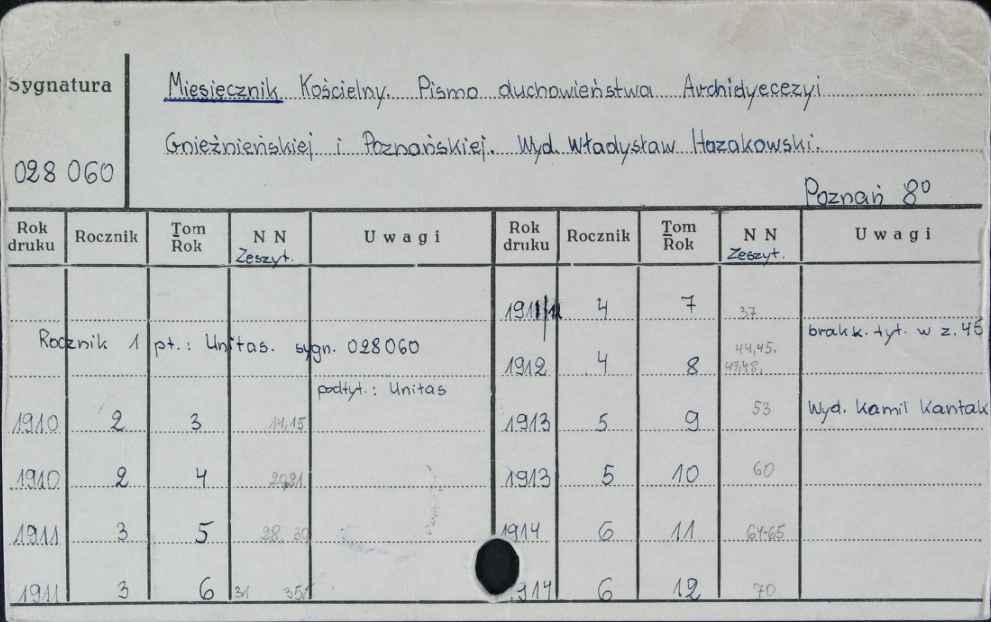 Sygnatura
028 060
Miesięcznik Kościelny. Pismo duchowieństwa Archidyecezyi
Gnieźnieńskiej i Poznańskiej. Wyd. Władysław Hozakowski.
Poznań 8°
Rok druku Rocznik Tom Rok NN Zeszyt. Uwagi Rok druku Rocznik Tom Rok NN Zeszyt. Uwagi
Rocznik 1 pt.: Unitas. sygn. 028060
podtyt.: Unitas
1910 2 3 14,15
1910 2 4 20,21
1911 3 5 28. 30
1911 3 6 31 35
1911/12 4 7 37
brak k. tyt. w z. 45
1912 4 8 44,45. 47,48.
1913 5 9 53 Wyd. Kamil Kantak
1913 5 10 60
1914 6 11 64-65
1914 6 12 70